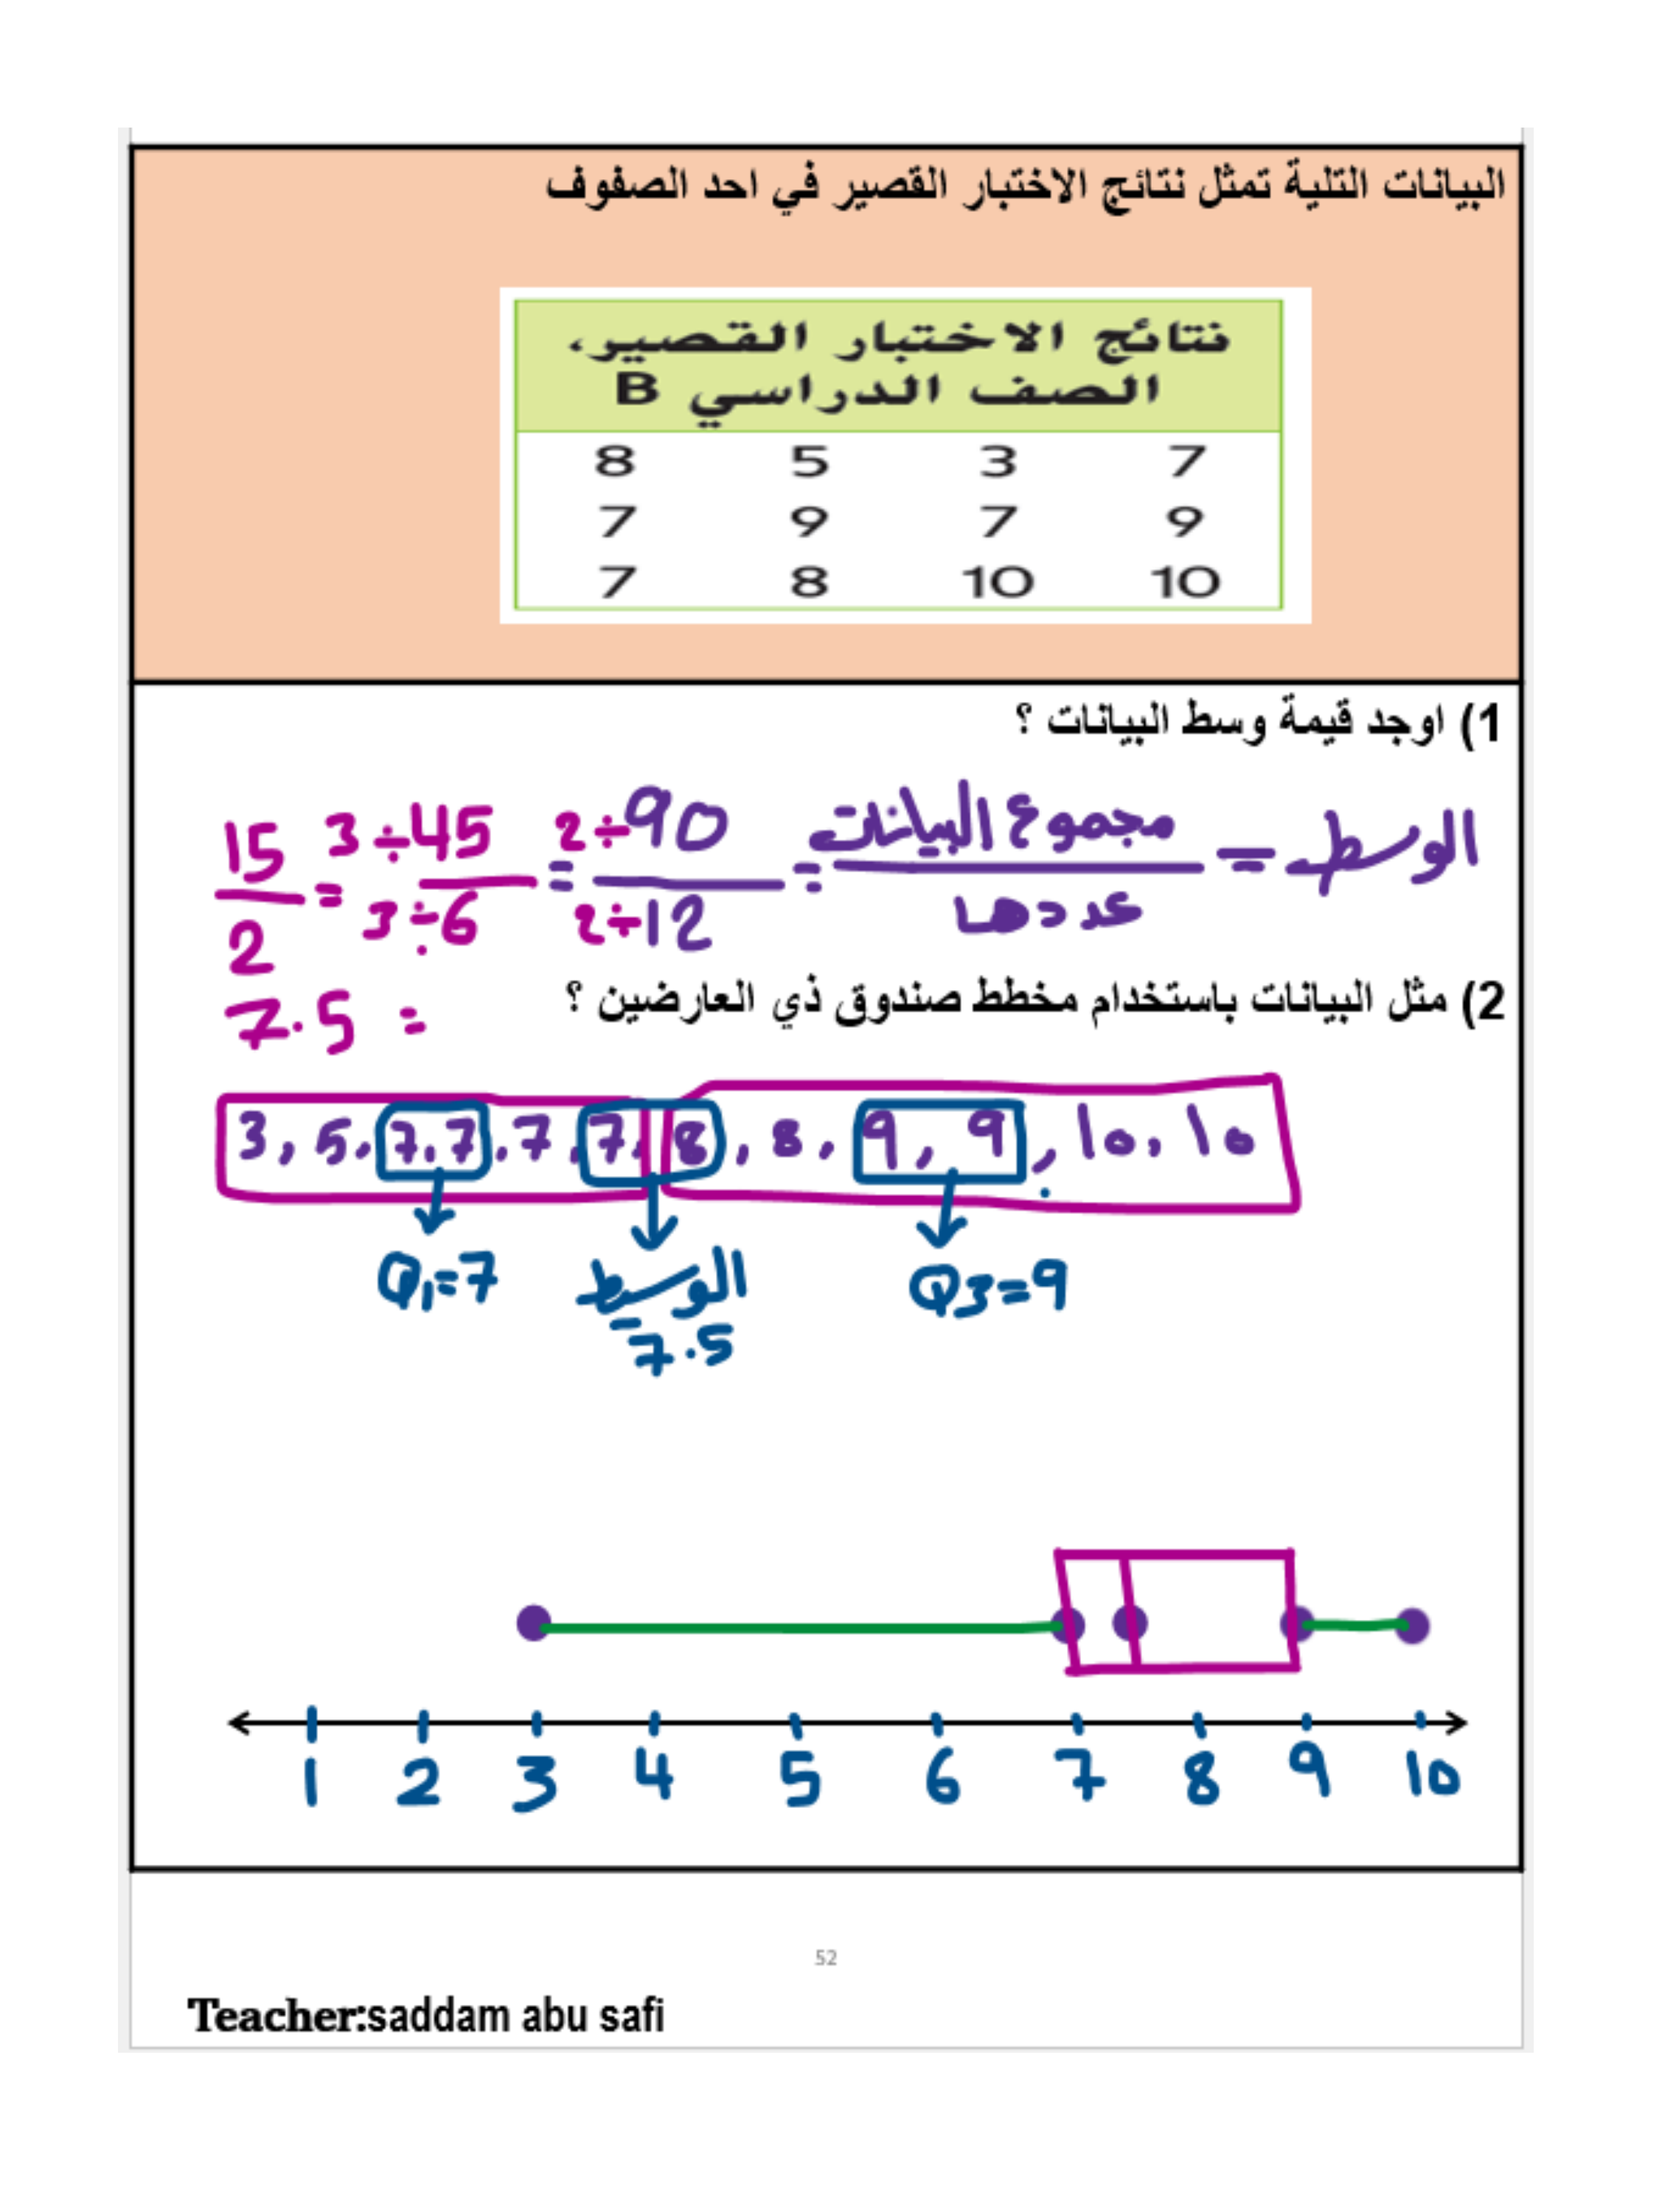 البيانات التلية تمثل نتائج الاختبار القصير في احد الصفوف
نتائج الاختبار القصير،
الصف الدراسي B
8 5 3 7
7 9 7 9
7 8 10 10
1) اوجد قيمة وسط البيانات ؟
الوسط = مجموع البيانات / عددها = 90 ÷2 / 12 ÷2 = 45 ÷3 / 6 ÷3 = 15 / 2
= 7.5
2) مثل البيانات باستخدام مخطط صندوق ذي العارضين ؟
3, 5, 7, 7, 7, 7, 8, 8, 9, 9, 10, 10
Q1=7 الوسط Q3=9
=7.5
1 2 3 4 5 6 7 8 9 10
52
Teacher:saddam abu safi